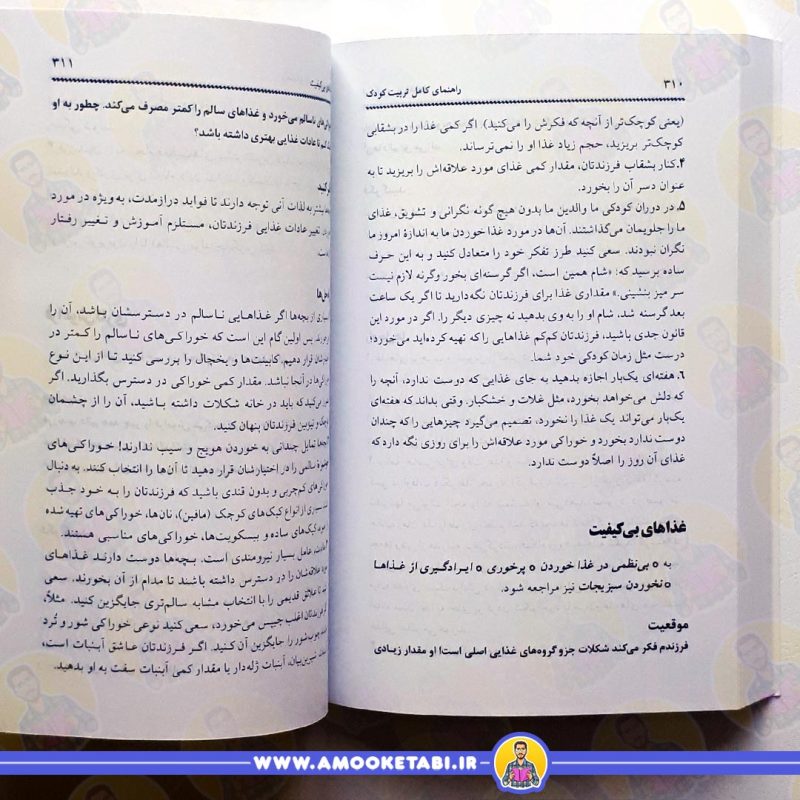 ۳۱۰
راهنمای کامل تربیت کودک
(یعنی کوچک‌تر از آنچه که فکرش را می‌کنید). اگر کمی غذا را در بشقابی
کوچک‌تر بریزید، حجم زیاد غذا او را نمی‌ترساند.
۴. کنار بشقاب فرزندتان، مقدار کمی غذای مورد علاقه‌اش را بریزید تا به
عنوان دسر آن را بخورد.
۵. در دوران کودکی ما والدین ما بدون هیچ گونه نگرانی و تشویق، غذای
ما را جلویمان می‌گذاشتند. آن‌ها در مورد غذا خوردن ما به اندازهٔ امروز ما
نگران نبودند. سعی کنید طرز تفکر خود را متعادل کنید و به این حرف
ساده برسید که: «شام همین است، اگر گرسنه‌ای بخور وگرنه لازم نیست
سر میز بنشینی.» مقداری غذا برای فرزندتان نگه دارید تا اگر یک ساعت
بعد گرسنه شد، شام او را به وی بدهید نه چیزی دیگر را. اگر در مورد این
قانون جدی باشید، فرزندتان کم‌کم غذاهایی را که تهیه کرده‌اید می‌خورد؛
درست مثل زمان کودکی خود شما.
۶. هفته‌ای یک‌بار اجازه بدهید به جای غذایی که دوست ندارد، آنچه را
که دلش می‌خواهد بخورد، مثل غلات و خشکبار. وقتی بداند که هفته‌ای
یک‌بار می‌تواند یک غذا را نخورد، تصمیم می‌گیرد چیزهایی را که چندان
دوست ندارد بخورد و خوراکی مورد علاقه‌اش را برای روزی نگه دارد که
غذای آن روز را اصلاً دوست ندارد.
غذاهای بی‌کیفیت
به بی‌نظمی در غذا خوردن پرخوری ایرادگیری از غذاها
نخوردن سبزیجات نیز مراجعه شود.
موقعیت
فرزندم فکر می‌کند شکلات جزو گروه‌های غذایی اصلی است! او مقدار زیادی
۳۱۱
ناسالم می‌خورد و غذاهای سالم را کمتر مصرف می‌کند. چطور به او
تا عادات غذایی بهتری داشته باشد؟
بیشتر به لذات آنی توجه دارند تا فواید درازمدت، به‌ویژه در مورد
تغییر عادات غذایی فرزندتان، مستلزم آموزش و تغییر رفتار
از بچه‌ها اگر غذاهایی ناسالم در دسترسشان باشد، آن را
پس اولین گام این است که خوراکی‌های ناسالم را کمتر در
قرار دهیم. کابینت‌ها و یخچال را بررسی کنید تا از این نوع
در آنجا نباشد. مقدار کمی خوراکی در دسترس بگذارید. اگر
می‌کنید که باید در خانه شکلات داشته باشید، آن را از چشمان
و تیزبین فرزندتان پنهان کنید.
تمایل چندانی به خوردن هویج و سیب ندارند! خوراکی‌های
سالمی را در اختیارشان قرار دهید تا آن‌ها را انتخاب کنند. به دنبال
کم‌چربی و بدون قندی باشید که فرزندتان را به خود جذب
از انواع کیک‌های کوچک (مافین)، نان‌ها، خوراکی‌های تهیه‌شده
کیک‌های ساده و بیسکویت‌ها، خوراکی‌های مناسبی هستند.
عامل بسیار نیرومندی است. بچه‌ها دوست دارند غذاهای
علاقه‌شان را در دسترس داشته باشند تا مدام از آن بخورند. سعی
تا علائق قدیمی را با انتخاب مشابه سالم‌تری جایگزین کنید. مثلاً،
اغلب چیپس می‌خورد، سعی کنید نوعی خوراکی شور و تُرد
چوب‌شور را جایگزین آن کنید. اگر فرزندتان عاشق آبنبات است،
شیرین‌بیان، آبنبات ژله‌دار یا مقدار کمی آبنبات سفت به او بدهید.
WWW.AMOOKETABI.IR